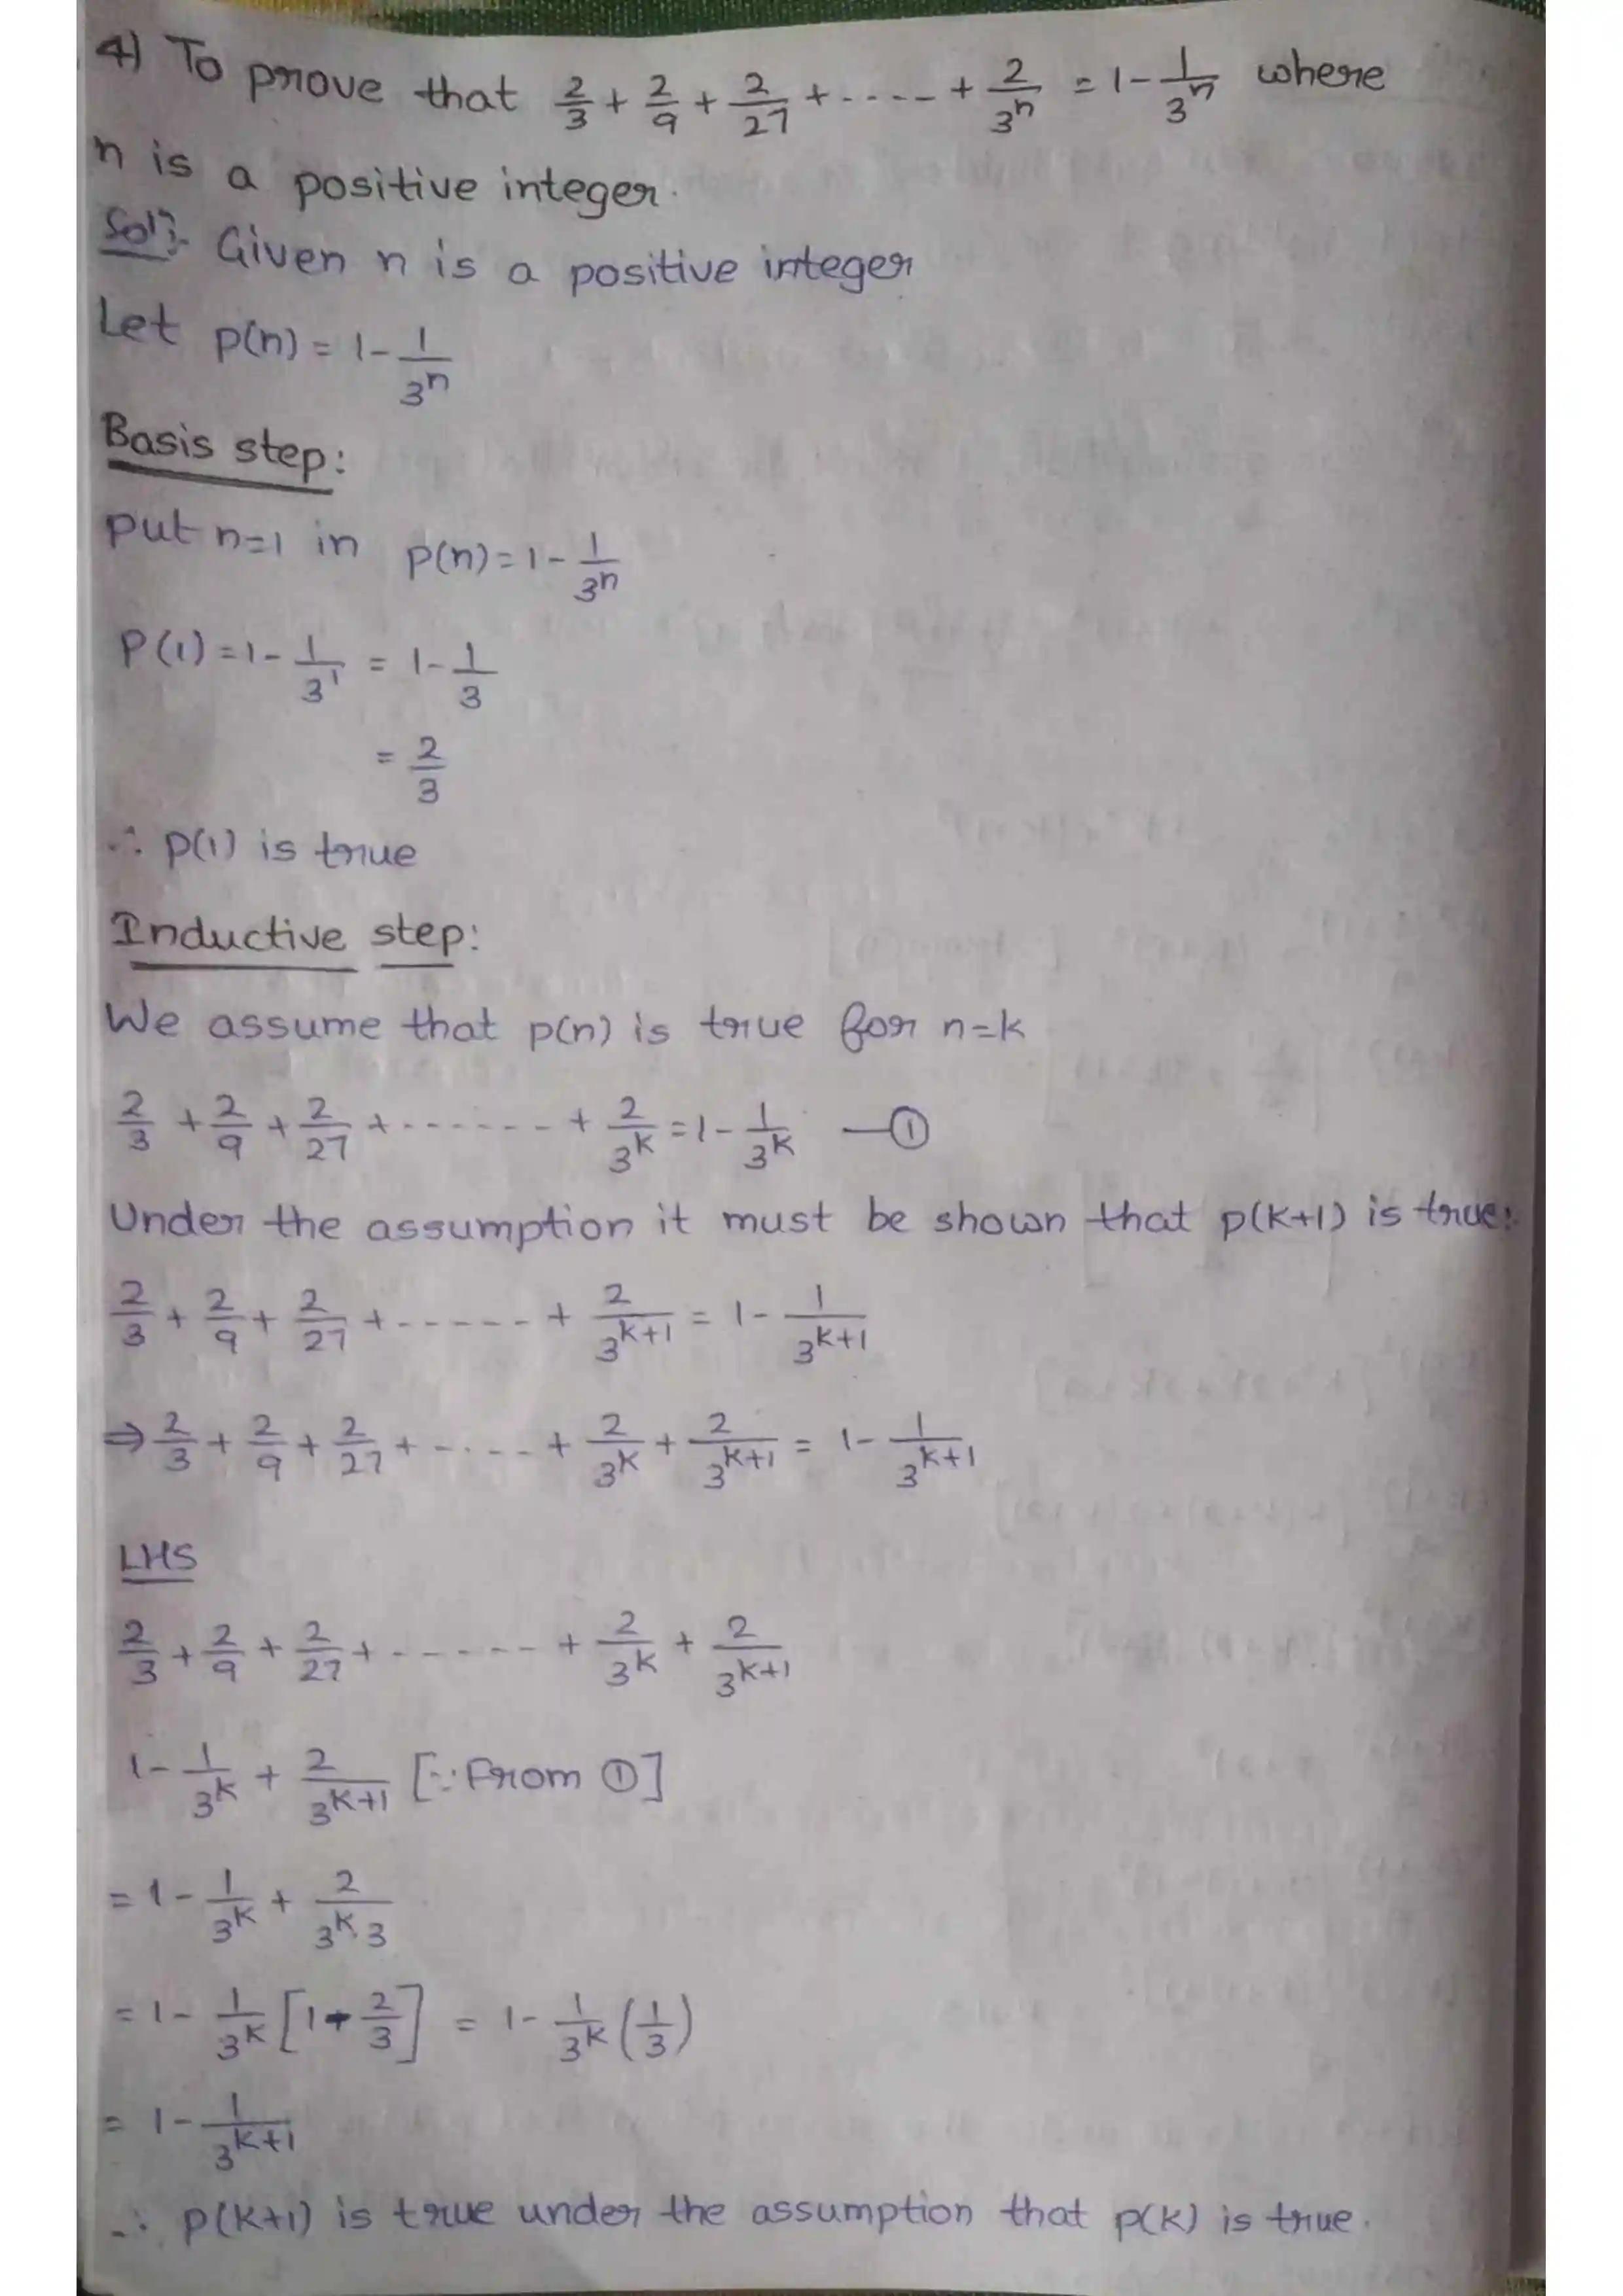 4) To prove that 2/3 + 2/9 + 2/27 + ..... + 2/3^n = 1 - 1/3^n where
n is a positive integer.
Solⁿ:- Given n is a positive integer
Let p(n) = 1 - 1/3^n
Basis step:
put n=1 in p(n) = 1 - 1/3^n
P(1) = 1 - 1/3^1 = 1 - 1/3
= 2/3
∴ p(1) is true
Inductive step:
We assume that p(n) is true for n=k
2/3 + 2/9 + 2/27 + ....... + 2/3^k = 1 - 1/3^k —①
Under the assumption it must be shown that p(k+1) is true:
2/3 + 2/9 + 2/27 + ...... + 2/3^(k+1) = 1 - 1/3^(k+1)
⇒ 2/3 + 2/9 + 2/27 + ..... + 2/3^k + 2/3^(k+1) = 1 - 1/3^(k+1)
LHS
2/3 + 2/9 + 2/27 + ...... + 2/3^k + 2/3^(k+1)
1 - 1/3^k + 2/3^(k+1) [∵ From ①]
= 1 - 1/3^k + 2/(3^k.3)
= 1 - 1/3^k [1 + 2/3] = 1 - 1/3^k (1/3)
= 1 - 1/3^(k+1)
∴ p(k+1) is true under the assumption that p(k) is true.